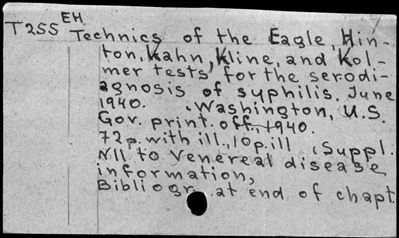 EH
T255 Technics of the Eagle, Hin-
ton, Kahn, Kline, and Kol-
mer tests for the serodi-
agnosis of syphilis, June
1940. Washington, U.S.
Gov. print. off., 1940.
72p. with ill., 10p. ill (Suppl.
N11 to Venereal disease
information,
Bibliogr. at end of chapt.